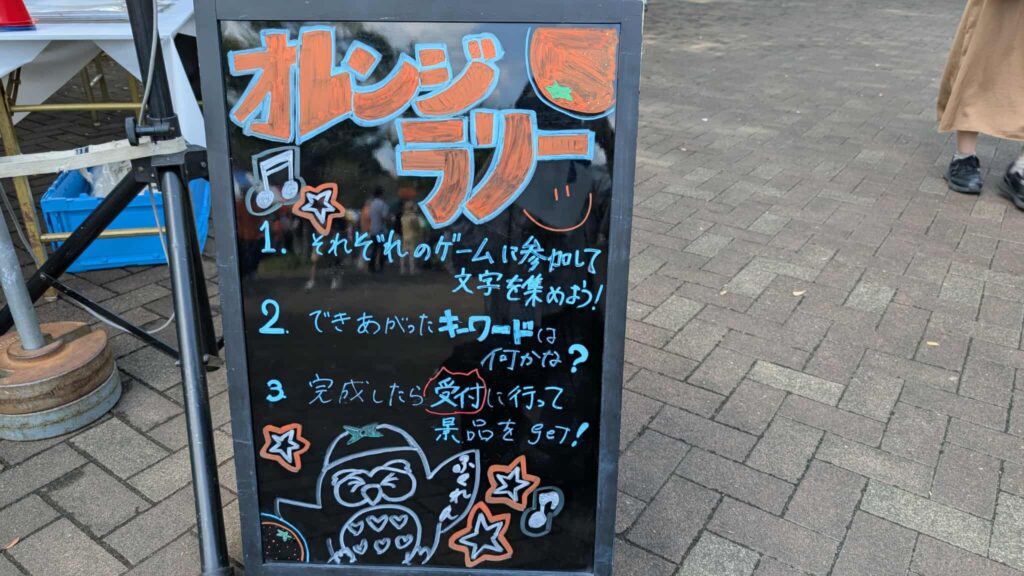 オレンジ
ラリー
1. それぞれのゲームに参加して
文字を集めよう!
2. できあがったキーワードは
何かな?
3. 完成したら受付に行って
景品をget!
ふくれん